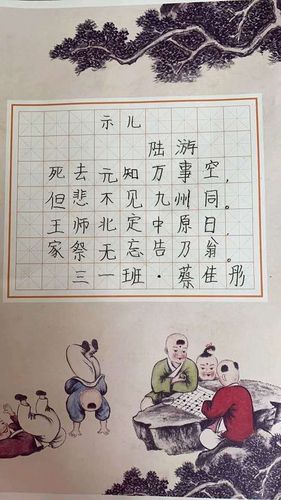 示儿
陆游
死去元知万事空，
但悲不见九州同。
王师北定中原日，
家祭无忘告乃翁。
三一班·蔡佳彤